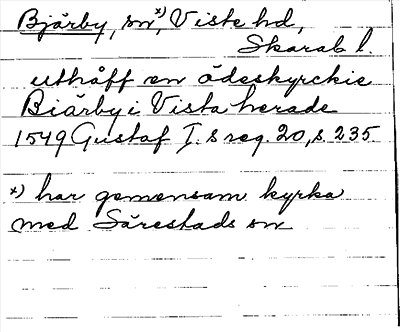 Bjärby, sn x), Viste hd,
Skarab l.
uthåff en ödeskyrckie
Biärby i Vista herade
1549 Gustaf I.s reg. 20, s. 235.
x) har gemensam kyrka
med Särestads sn